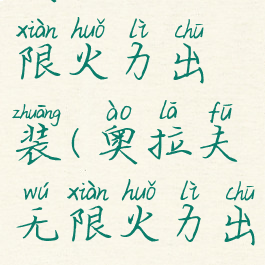 xiàn huǒ lì chū
限火力出
zhuāng ào lā fū
装(奥拉夫
wú xiàn huǒ lì chū
无限火力出